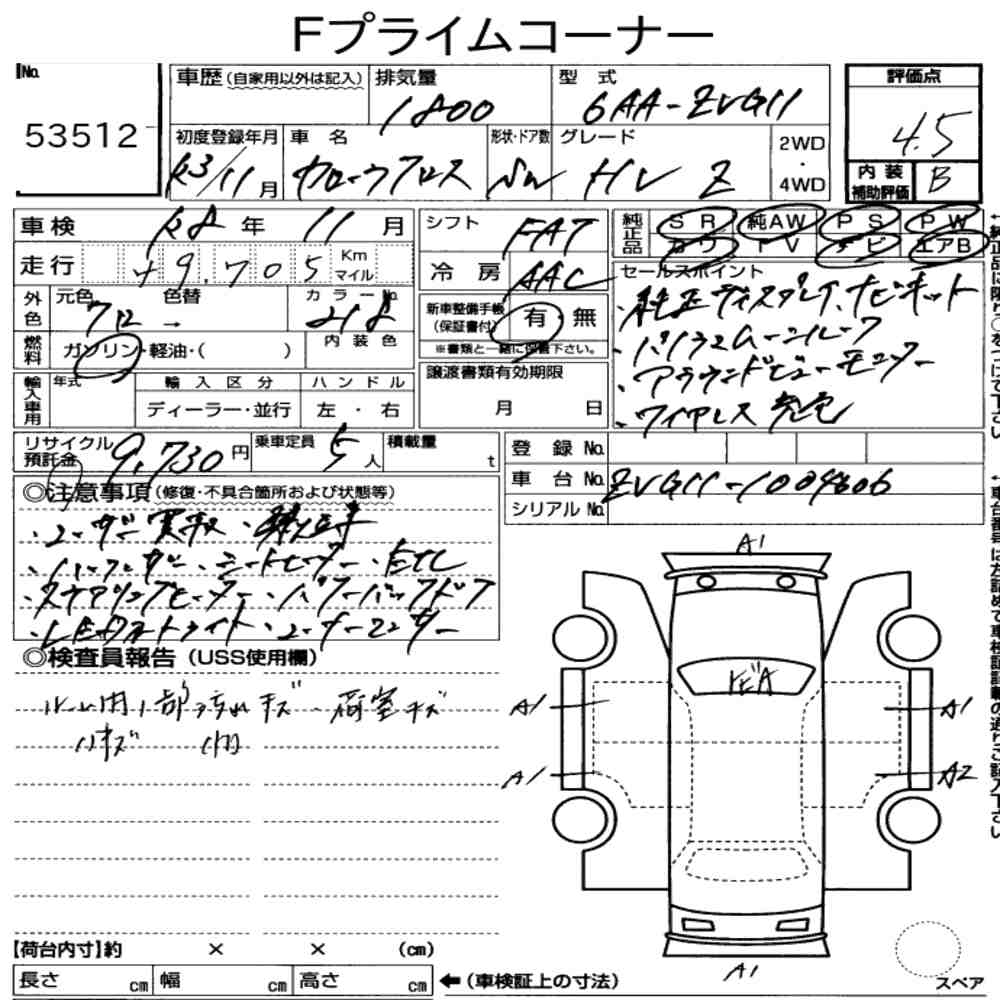 Fプライムコーナー
No.
53512
車歴 (自家用以外は記入)
排気量
1800
型 式
6AA-ZVG11
評価点
4.5
内装補助評価
B
初度登録年月
R3/11月
車 名
カローラクロス
形状・ドア数
SW
グレード
HV Z
2WD
・
4WD
車検
R8年 11月
走行
49,705
Km
マイル
外色
元色
クロ
色替
→
カラーNo.
218
燃料
ガソリン・軽油・( )
内装色
輸入車用
年式
輸入区分
ディーラー・並行
ハンドル
左・右
シフト
FAT
冷房
AAC
新車整備手帳
(保証書付)
有・無
※書類と一緒に保管下さい。
譲渡書類有効期限
月 日
純正品
SR 純AW PS PW
カワ TV ナビ エアB
セールスポイント
・純正ディスプレイ、ナビキット
・パノラマムーンルーフ
・アラウンドビューモニター
・ワイヤレス充電
リサイクル預託金
9,730円
乗車定員
5人
積載量
t
登録No.
車台No.
ZVG11-1004606
シリアルNo.
◎注意事項 (修復・不具合箇所および状態等)
・ユーザー買取
・シートヒーター ・ETC
・ステアリングヒーター ・パワーバックドア
・LEDオートライト
◎検査員報告 (USS使用欄)
ルーム内 汚れ キズ 荷室キズ
ハキズ
A1
A1
A1
A1
A2
A1
【荷台内寸】約 × × (cm)
長さ cm 幅 cm 高さ cm
←(車検証上の寸法)
スペア
←純正品に限り○をつけて下さい
←車台番号は左詰めで車検証記載の通りご記入下さい